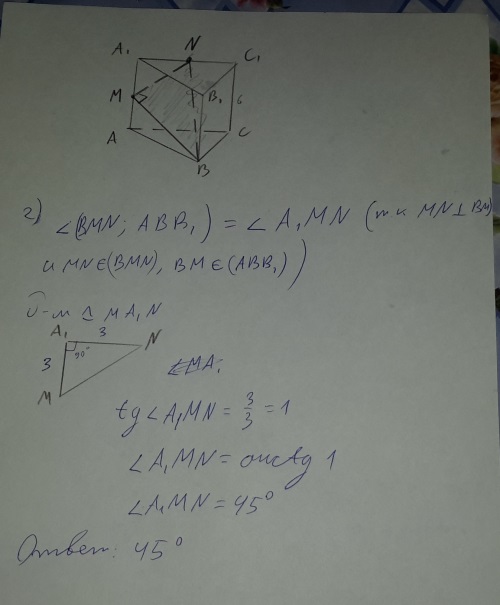 A₁ N C₁
M B₁ 6
A C
B
2) ∠(BMN; ABB₁) = ∠A₁MN (т к MN⊥BM
и MN∈(BMN), BM∈(ABB₁))
△ MA₁N
A₁ 3 N
3 90°
M
tg∠A₁MN = 3/3 = 1
∠A₁MN = arctg 1
∠A₁MN = 45°
Ответ: 45°